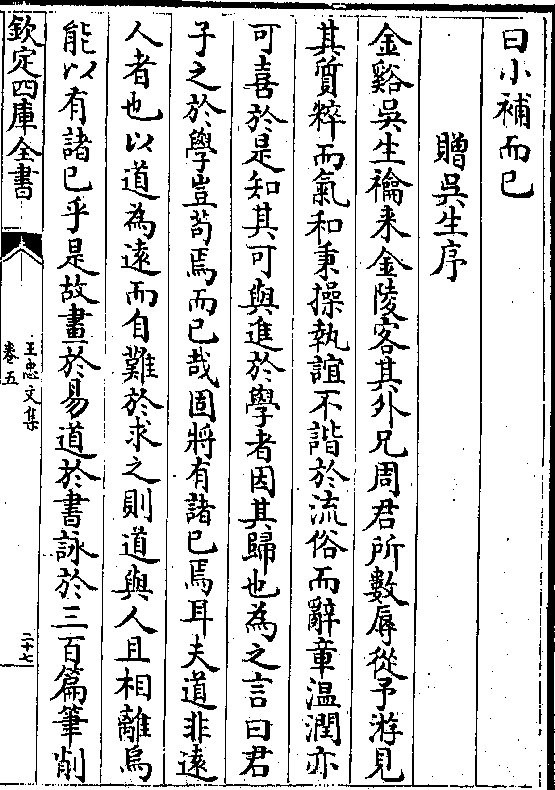 曰小補而已
贈吳生序
金谿吳生禬来金陵客其外兄周君所數辱從予游見
其質粹而氣和秉操執誼不諧於流俗而辭章温潤亦
可喜於是知其可與進於學者因其歸也為之言曰君
子之於學豈苟焉而已哉固將有諸已焉耳夫道非逺
人者也以道為逺而自難於求之則道與人且相離烏
能以有諸已乎是故畫於易道於書詠於三百篇筆削
欽定四庫全書
王忠文集
卷五
二十七